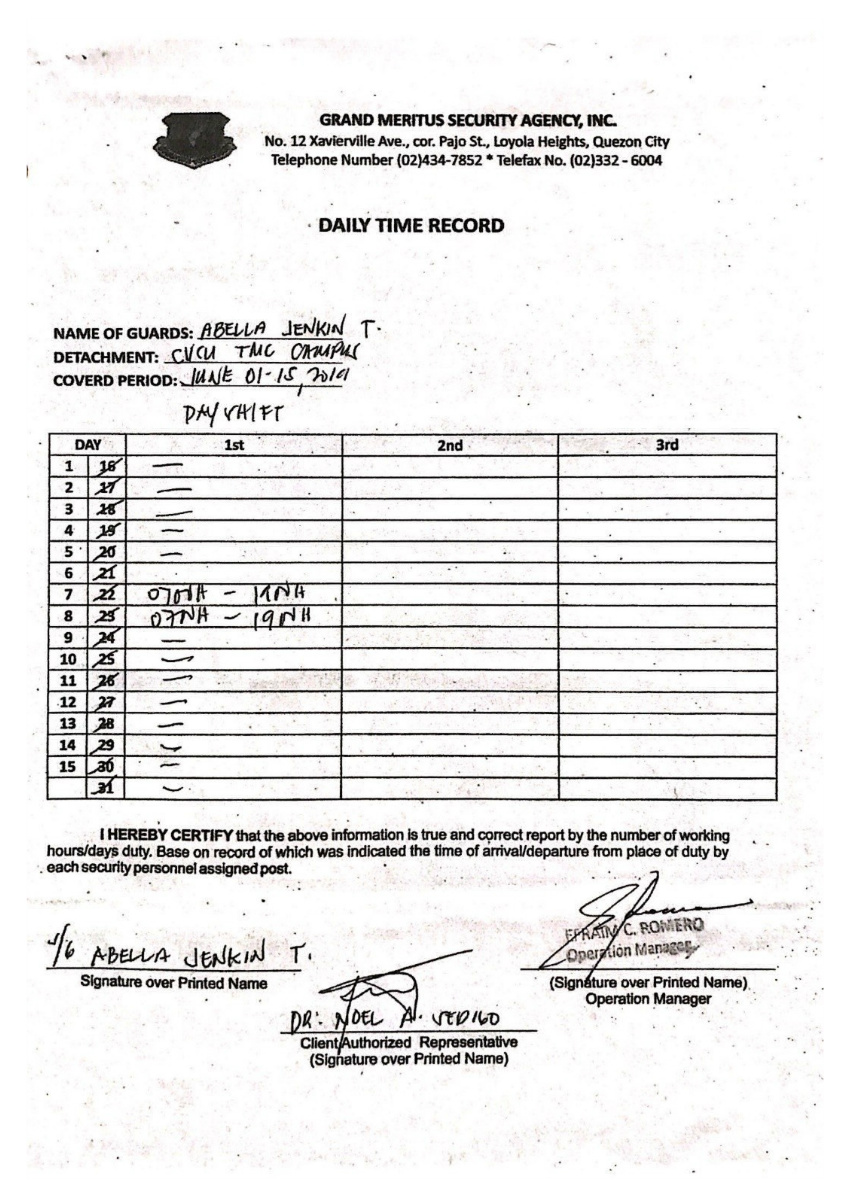 GRAND MERITUS SECURITY AGENCY, INC.
No. 12 Xavierville Ave., cor. Pajo St., Loyola Heights, Quezon City
Telephone Number (02)434-7852 * Telefax No. (02)332 - 6004
DAILY TIME RECORD
NAME OF GUARDS: ABELLA JENKIN T.
DETACHMENT: CVCU TMC CAMPUS
COVERD PERIOD: JUNE 01-15, 2019
DAY SHIFT
DAY 1st 2nd 3rd
1 16 —
2 17 —
3 18 —
4 19 —
5 20 —
6 21
7 22 0700H - 1900H
8 23 0700H - 1900H
9 24 —
10 25 —
11 26 —
12 27 —
13 28 —
14 29 —
15 30 —
31 —
I HEREBY CERTIFY that the above information is true and correct report by the number of working
hours/days duty. Base on record of which was indicated the time of arrival/departure from place of duty by
each security personnel assigned post.
EFRAIM C. ROMERO
Operation Manager
S/G ABELLA JENKIN T.
Signature over Printed Name
(Signature over Printed Name)
Operation Manager
DR. NOEL A.
Client/Authorized Representative
(Signature over Printed Name)